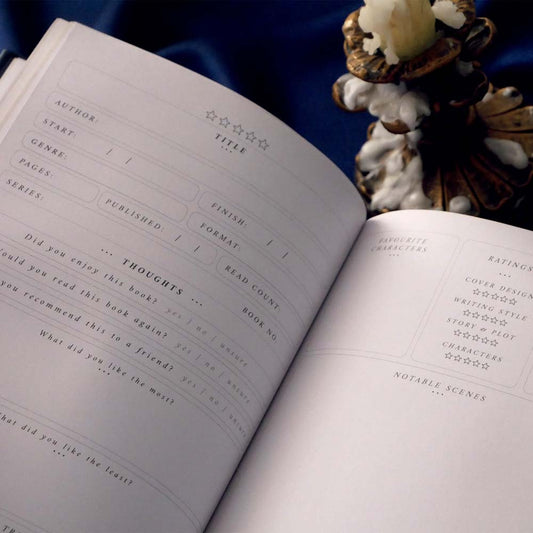 TITLE
AUTHOR:
START: / /
FINISH: / /
GENRE:
FORMAT:
PAGES:
PUBLISHED: / /
READ COUNT
SERIES:
BOOK NO
THOUGHTS
Did you enjoy this book? yes | no | unsure
ould you read this book again? yes | no | unsure
you recommend this to a friend? yes | no | unsure
What did you like the most?
hat did you like the least?
FAVOURITE
CHARACTERS
RATINGS
COVER DESIGN
WRITING STYLE
STORY & PLOT
CHARACTERS
NOTABLE SCENES